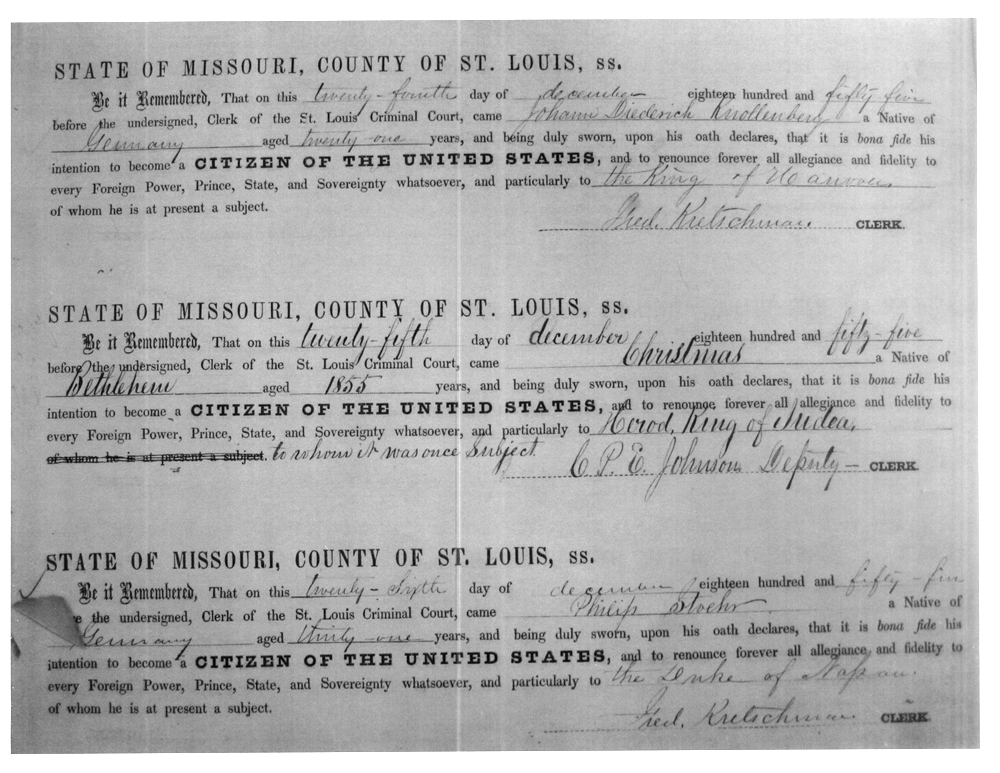 STATE OF MISSOURI, COUNTY OF ST. LOUIS, ss.
Be it Remembered, That on this twenty-fourth day of december eighteen hundred and fifty five
before the undersigned, Clerk of the St. Louis Criminal Court, came Johann Diederich Knollenberg a Native of
Germany aged twenty-one years, and being duly sworn, upon his oath declares, that it is bona fide his
intention to become a CITIZEN OF THE UNITED STATES, and to renounce forever all allegiance and fidelity to
every Foreign Power, Prince, State, and Sovereignty whatsoever, and particularly to the King of Hanover
of whom he is at present a subject.
Fred. Kretschmar. CLERK.
STATE OF MISSOURI, COUNTY OF ST. LOUIS, ss.
Be it Remembered, That on this twenty-fifth day of december eighteen hundred and fifty-five
before the undersigned, Clerk of the St. Louis Criminal Court, came Christmas a Native of
Bethlehem aged 1855 years, and being duly sworn, upon his oath declares, that it is bona fide his
intention to become a CITIZEN OF THE UNITED STATES, and to renounce forever all allegiance and fidelity to
every Foreign Power, Prince, State, and Sovereignty whatsoever, and particularly to Herod, King of Judea,
of whom he is at present a subject. to whom it was once Subject.
C. P. E. Johnson Deputy - CLERK.
STATE OF MISSOURI, COUNTY OF ST. LOUIS, ss.
Be it Remembered, That on this twenty-sixth day of december eighteen hundred and fifty-five
the undersigned, Clerk of the St. Louis Criminal Court, came Philip Stoehr a Native of
Germany aged thirty-one years, and being duly sworn, upon his oath declares, that it is bona fide his
intention to become a CITIZEN OF THE UNITED STATES, and to renounce forever all allegiance and fidelity to
every Foreign Power, Prince, State, and Sovereignty whatsoever, and particularly to the Duke of Nassau.
of whom he is at present a subject.
Fred. Kretschmar CLERK.